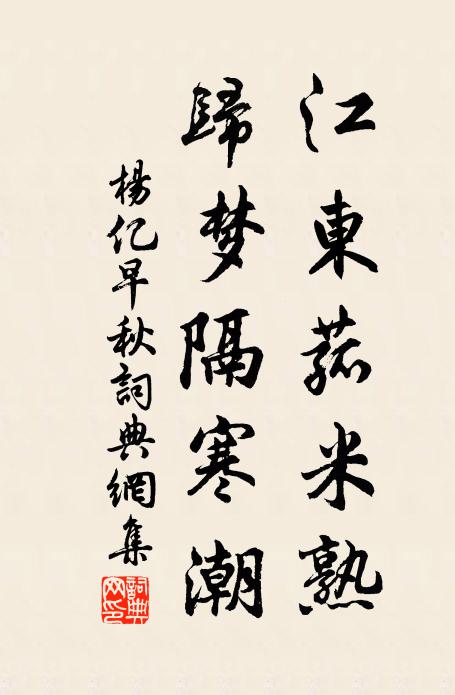 江東菰米熟
歸梦隔寒潮
楊亿早秋詞典網集
詞典网印